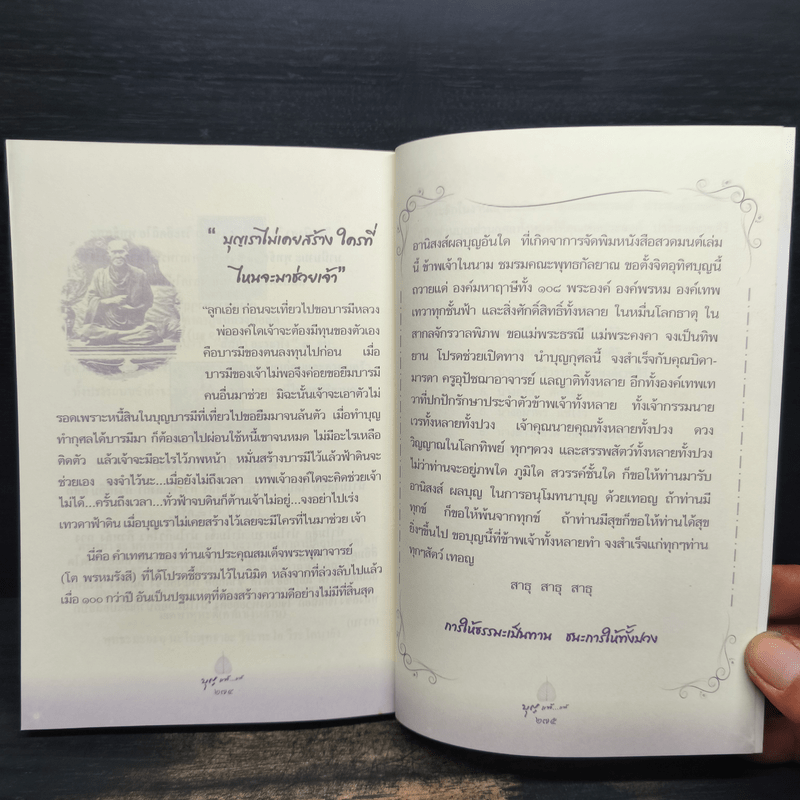 “ บุญเราไม่เคยสร้าง ใครที่
ไหนจะมาช่วยเจ้า”
“ลูกเอ๋ย ก่อนจะเที่ยวไปขอบารมีหลวง
พ่อองค์ใดเจ้าจะต้องมีทุนของตัวเอง
คือบารมีของตนลงทุนไปก่อน เมื่อ
บารมีของเจ้าไม่พอจึงค่อยขอยืมบารมี
คนอื่นมาช่วย มิฉะนั้นเจ้าจะเอาตัวไม่
รอดเพราะหนี้สินในบุญบารมีที่เที่ยวไปขอยืมมาจนล้นตัว เมื่อทำบุญ
ทำกุศลได้บารมีมา ก็ต้องเอาไปผ่อนใช้หนี้เขาจนหมด ไม่มีอะไรเหลือ
ติดตัว แล้วเจ้าจะมีอะไรไว้ภพหน้า หมั่นสร้างบารมีไว้แล้วฟ้าดินจะ
ช่วยเอง จงจำไว้นะ...เมื่อยังไม่ถึงเวลา เทพเจ้าองค์ใดจะคิดช่วยเจ้า
ไม่ได้...ครั้นถึงเวลา...ทั่วฟ้าจบดินก็ต้านเจ้าไม่อยู่...จงอย่าไปเร่ง
เทวดาฟ้าดิน เมื่อบุญเราไม่เคยสร้างไว้เลยจะมีใครที่ไหนมาช่วย เจ้า
นี่คือ คำเทศนาของ ท่านเจ้าประคุณสมเด็จพระพุฒาจารย์
(โต พรหมรังสี) ที่ได้โปรดชี้ธรรมไว้ในนิมิต หลังจากที่ล่วงลับไปแล้ว
เมื่อ ๑๐๐ กว่าปี อันเป็นปฐมเหตุที่ต้องสร้างความดีอย่างไม่มีที่สิ้นสุด
๒๗๔
อานิสงส์ผลบุญอันใด ที่เกิดจากการจัดพิมหนังสือสวดมนต์เล่ม
นี้ ข้าพเจ้าในนาม ชมรมคณะพุทธกัลยาณ ขอตั้งจิตอุทิศบุญนี้
ถวายแด่ องค์มหาฤาษีทั้ง ๑๐๘ พระองค์ องค์พรหม องค์เทพ
เทวาทุกชั้นฟ้า และสิ่งศักดิ์สิทธิ์ทั้งหลาย ในหมื่นโลกธาตุ ใน
สากลจักรวาลพิภพ ขอแม่พระธรณี แม่พระคงคา จงเป็นทิพ
ยาน โปรดช่วยเปิดทาง นำบุญกุศลนี้ จงสำเร็จกับคุณบิดา-
มารดา ครูอุปัชฌาอาจารย์ แลญาติทั้งหลาย อีกทั้งองค์เทพเท
วาที่ปกปักรักษาประจำตัวข้าพเจ้าทั้งหลาย ทั้งเจ้ากรรมนาย
เวรทั้งหลายทั้งปวง เจ้าคุณนายคุณทั้งหลายทั้งปวง ดวง
วิญญาณในโลกทิพย์ ทุกๆดวง และสรรพสัตว์ทั้งหลายทั้งปวง
ไม่ว่าท่านจะอยู่ภพใด ภูมิใด สวรรค์ชั้นใด ก็ขอให้ท่านมารับ
อานิสงส์ ผลบุญ ในการอนุโมทนาบุญ ด้วยเทอญ ถ้าท่านมี
ทุกข์ ก็ขอให้พ้นจากทุกข์ ถ้าท่านมีสุขก็ขอให้ท่านได้สุข
ยิ่งๆขึ้นไป ขอบุญนี้ที่ข้าพเจ้าทั้งหลายทำ จงสำเร็จแก่ทุกๆท่าน
ทุกๆสัตว์ เทอญ
สาธุ สาธุ สาธุ
การให้ธรรมะเป็นทาน ชนะการให้ทั้งปวง
๒๗๕